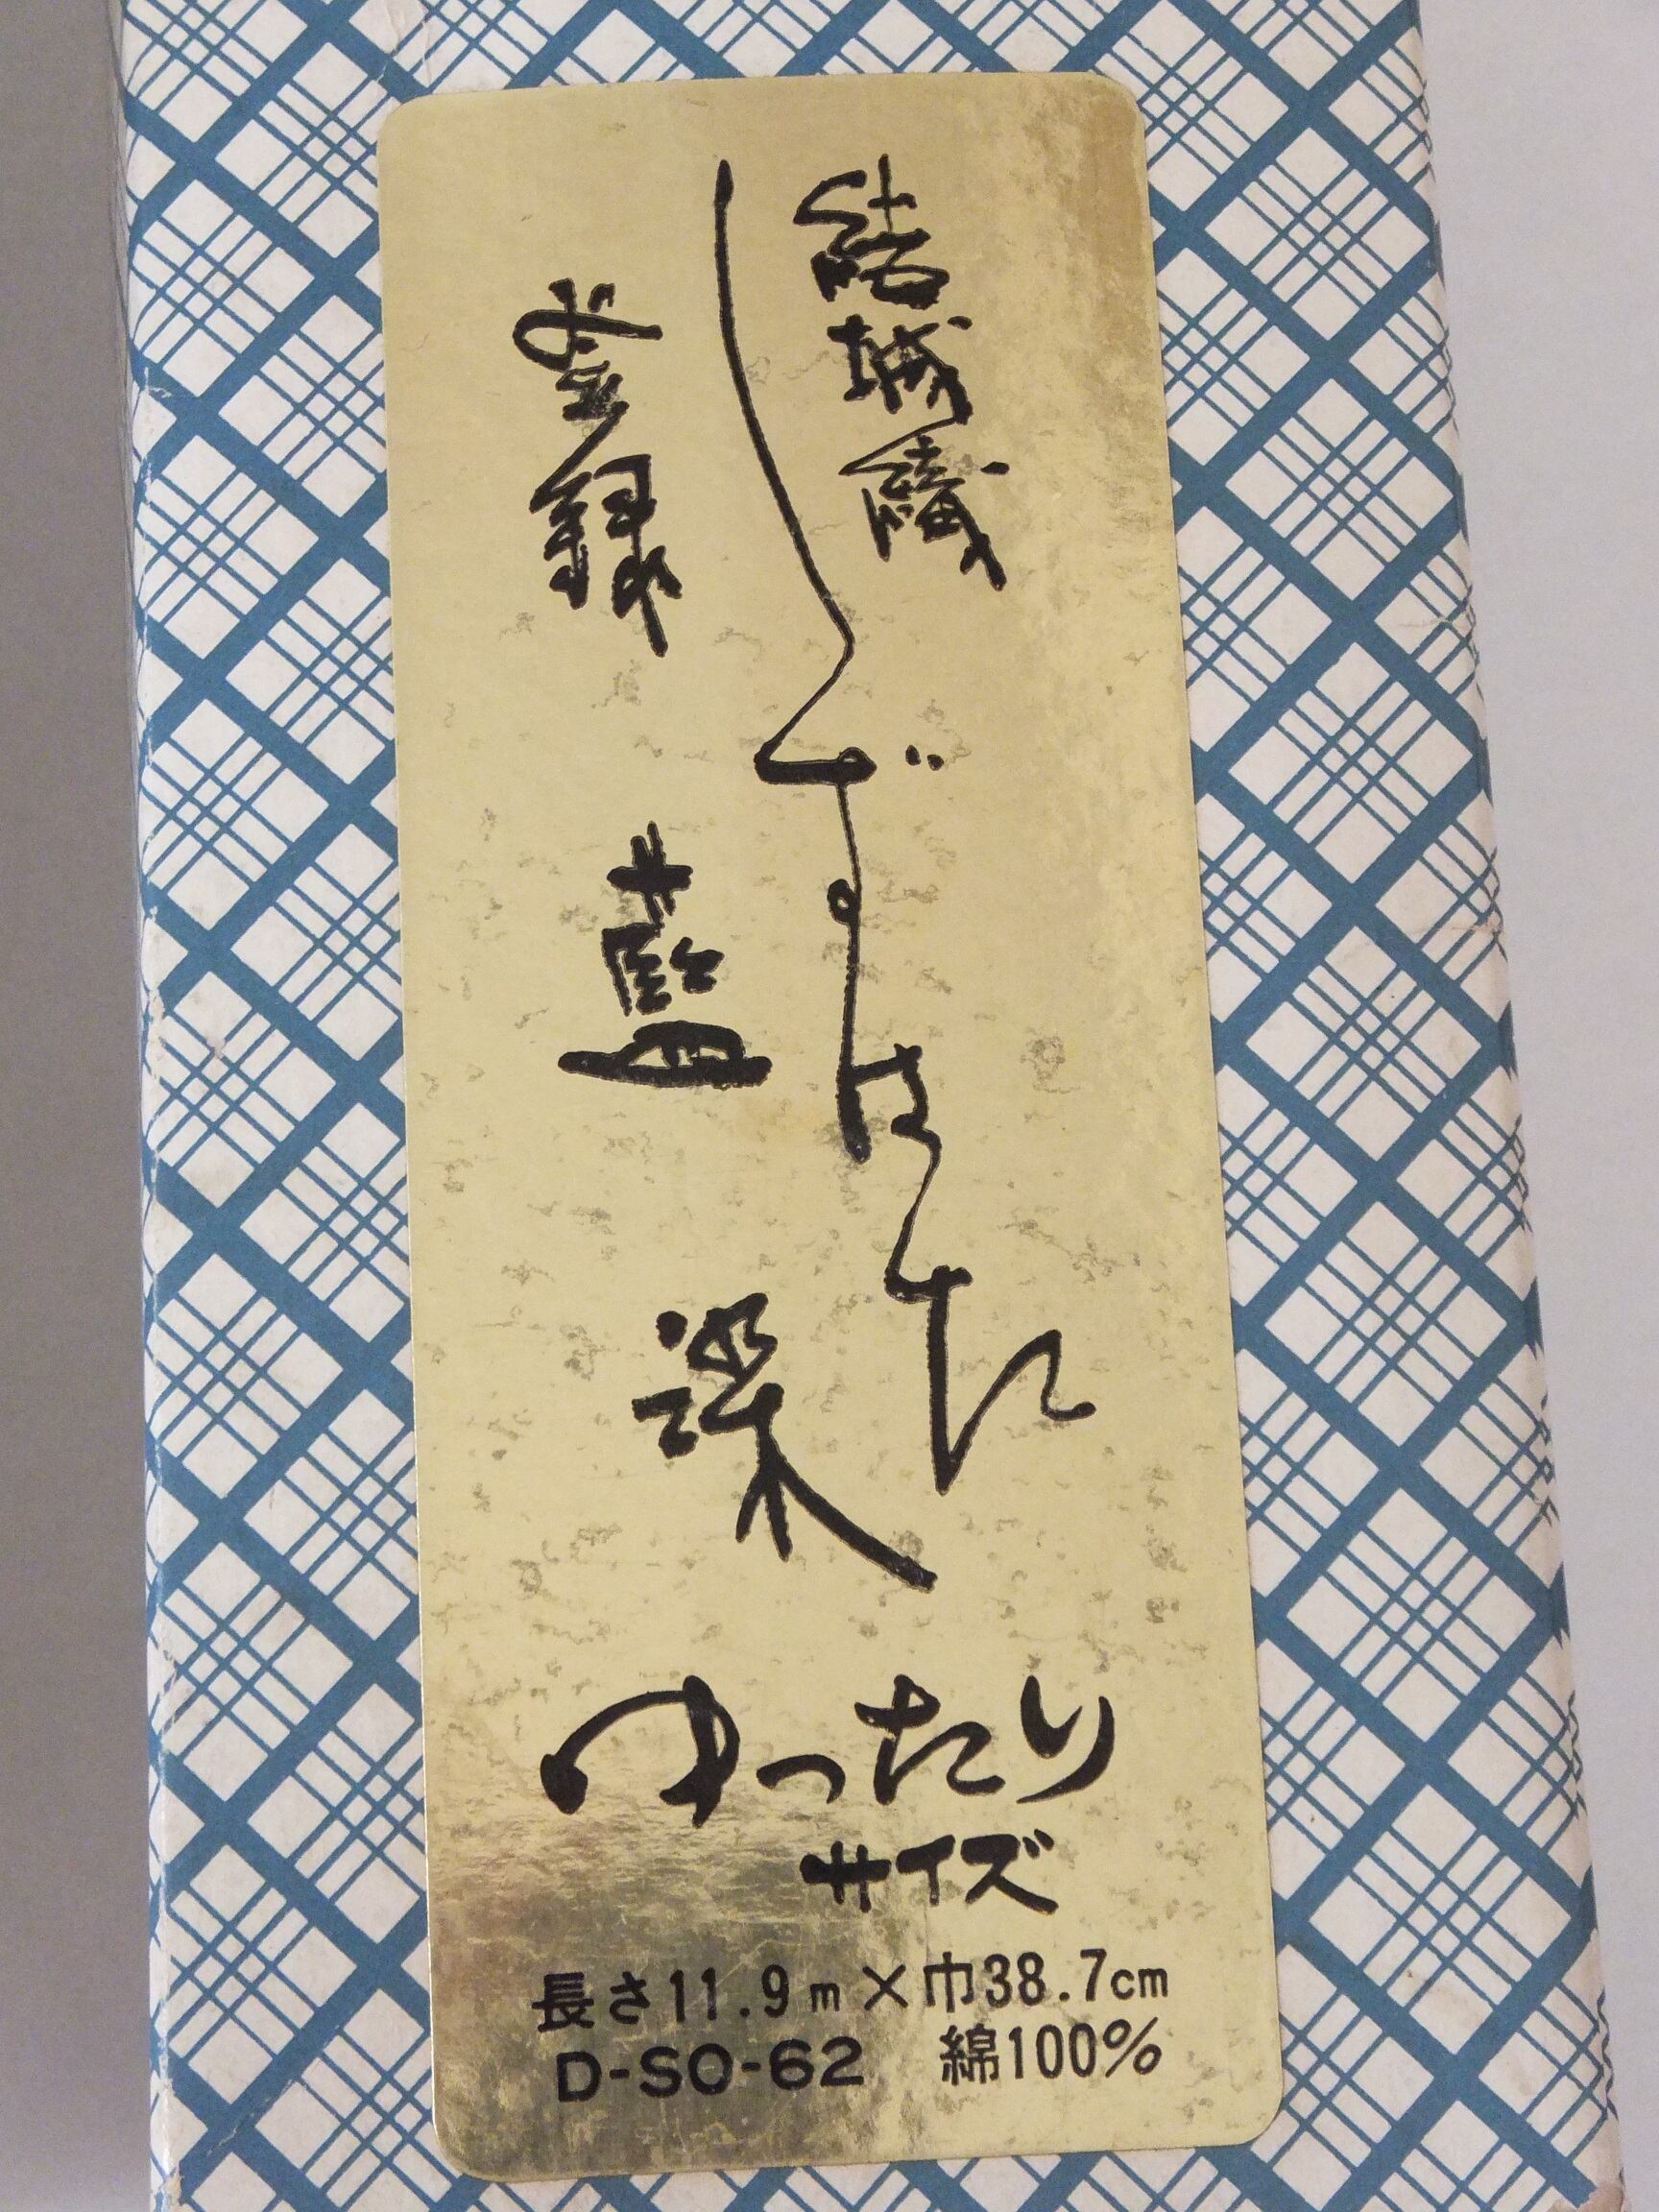 結城織
しずはた
藍染
ゆったり
サイズ
長さ11.9m×巾38.7cm
D-SO-62 綿100%